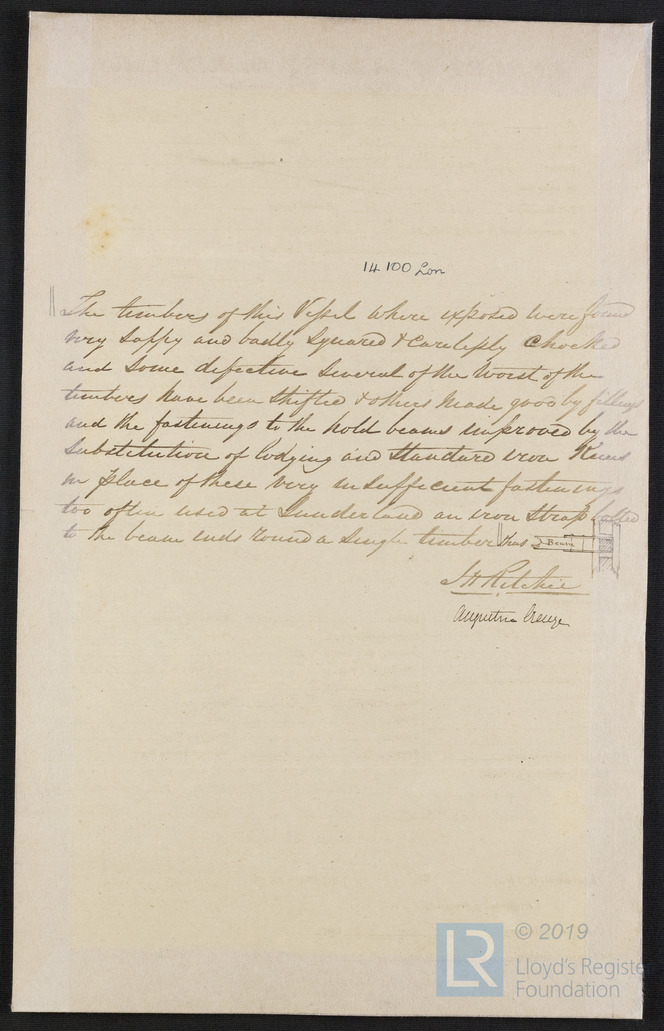 14100 Lon
The timbers of this Vessel where exposed were found
very sappy and badly squared & carelessly chocked
and some defective several of the worst of the
timbers have been shifted & others made good by fillings
and the fastenings to the hold beams improved by the
substitution of lodging and standard iron Knees
in place of these very insufficient fastenings
too often used at Sunderland an iron strap
to the beam ends round a single timber thus
Beam
J H Ritchie
Augustin Creuze
LR
© 2019
Lloyd's Register
Foundation